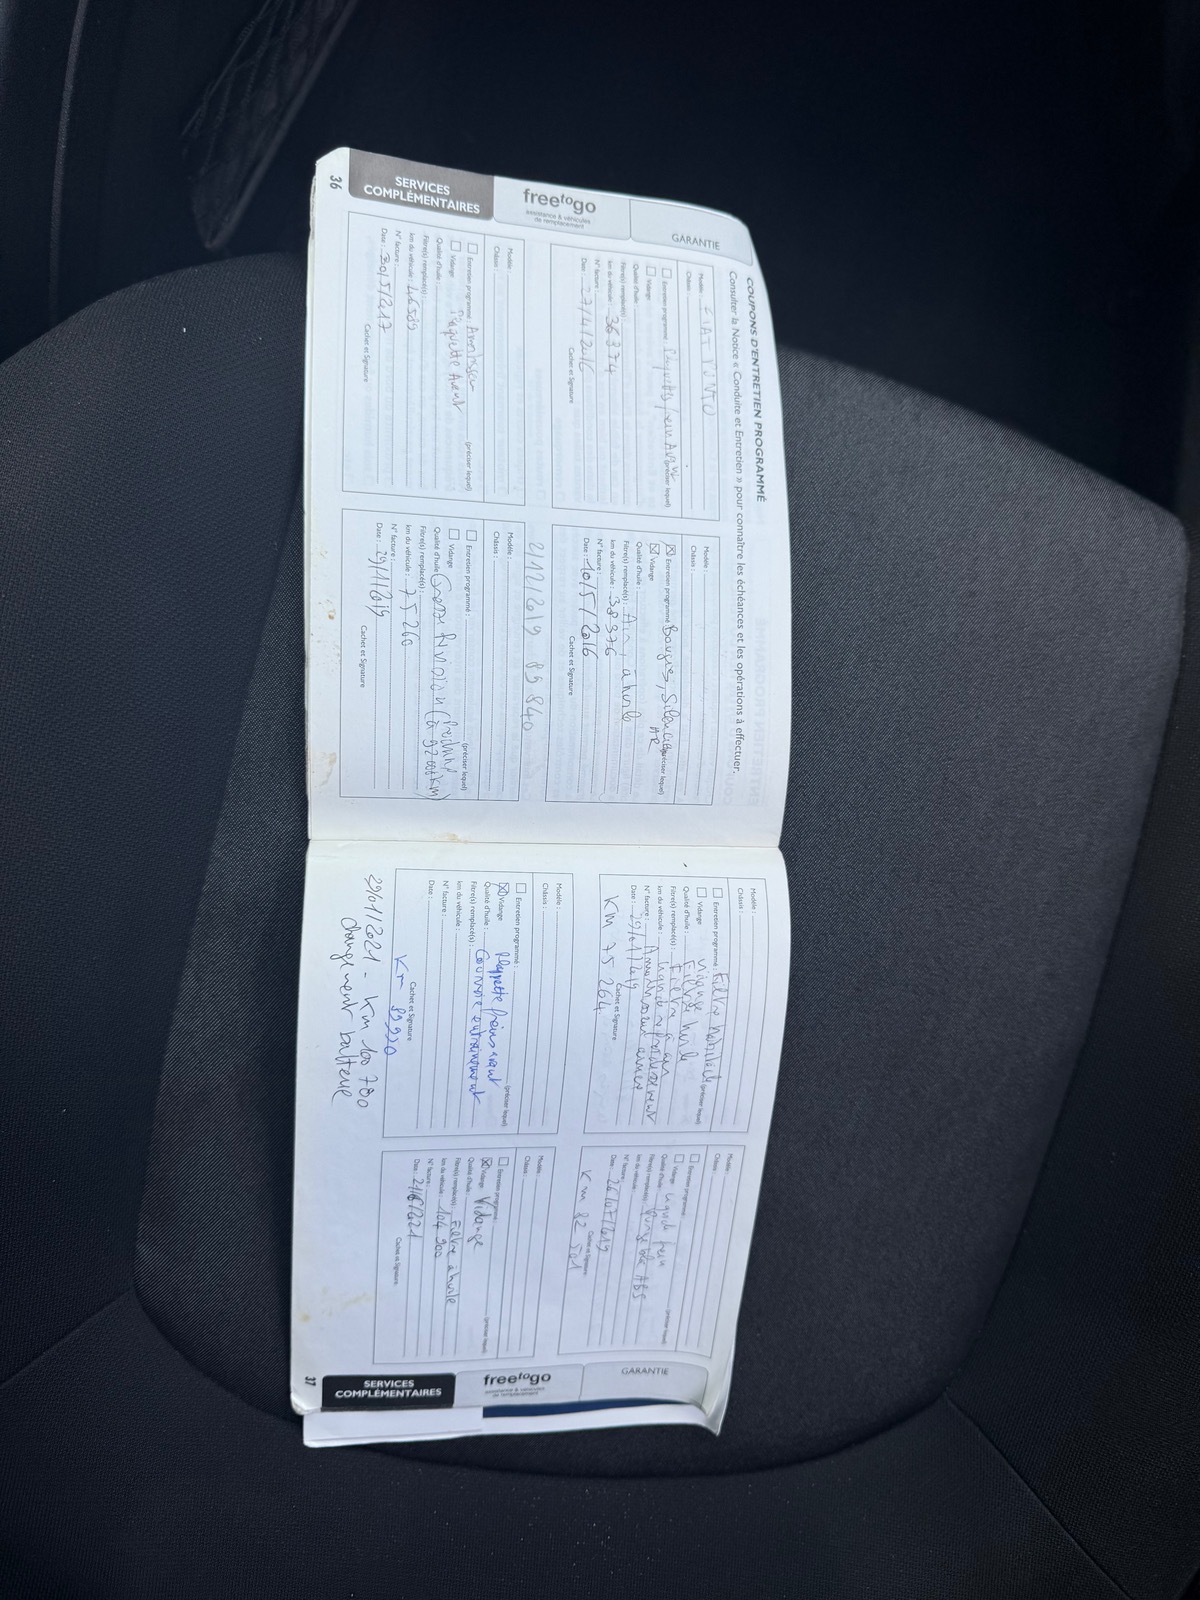 GARANTIE
freetogo
assistance & véhicules
de remplacement
SERVICES
COMPLÉMENTAIRES
36
COUPONS D'ENTRETIEN PROGRAMMÉ
Consulter la Notice « Conduite et Entretien » pour connaître les échéances et les opérations à effectuer.
Modèle : FIAT PUNTO
Châssis :
Entretien programmé : (préciser lequel)
Vidange
Qualité d'huile :
Filtre(s) remplacé(s) :
km du véhicule : 36374
N° facture :
Date : 27/4/2016
Cachet et Signature
Modèle :
Châssis :
Entretien programmé : Bougies, (préciser lequel)
AR
Vidange
Qualité d'huile :
Filtre(s) remplacé(s) : Air, à huile
km du véhicule : 38376
N° facture :
Date : 10/5/2016
Cachet et Signature
2/12/2019 89 840
Modèle :
Châssis :
Entretien programmé : (préciser lequel)
Vidange Plaquette Avant
Qualité d'huile :
Filtre(s) remplacé(s) :
km du véhicule : 46589
N° facture :
Date : 30/5/217
Cachet et Signature
Modèle :
Châssis :
Entretien programmé : (préciser lequel)
Vidange
Qualité d'huile : Grosse Révision (
Filtre(s) remplacé(s) :
km du véhicule : 75260
N° facture :
Date : 29/1/2019
Cachet et Signature
Modèle :
Châssis :
Entretien programmé : Filtre habitacle (préciser lequel)
Vidange
Qualité d'huile : Filtre huile
Filtre(s) remplacé(s) : Filtre à air
km du véhicule : Liquide refroidissement
N° facture :
Date : 29/01/2019
Cachet et Signature
KM 75 264
Modèle :
Châssis :
Entretien programmé : (préciser lequel)
Vidange
Qualité d'huile : Liquide frein
Filtre(s) remplacé(s) : Purge ABS
km du véhicule :
N° facture :
Date : 26/07/2019
Cachet et Signature
Km 82 501
Modèle :
Châssis :
Entretien programmé : (préciser lequel)
Vidange Plaquette freins avant
Qualité d'huile : Courroie entrainement
Filtre(s) remplacé(s) :
km du véhicule :
N° facture :
Date :
Cachet et Signature
Km 89 990
29/01/2021 - Km 100 780
changement batterie
Modèle :
Châssis :
Entretien programmé : (préciser lequel)
Vidange Vidange
Qualité d'huile :
Filtre(s) remplacé(s) : Filtre à huile
km du véhicule : 104 900
N° facture :
Date :
Cachet et Signature
GARANTIE
freetogo
assistance & véhicules
de remplacement
SERVICES
COMPLÉMENTAIRES
37